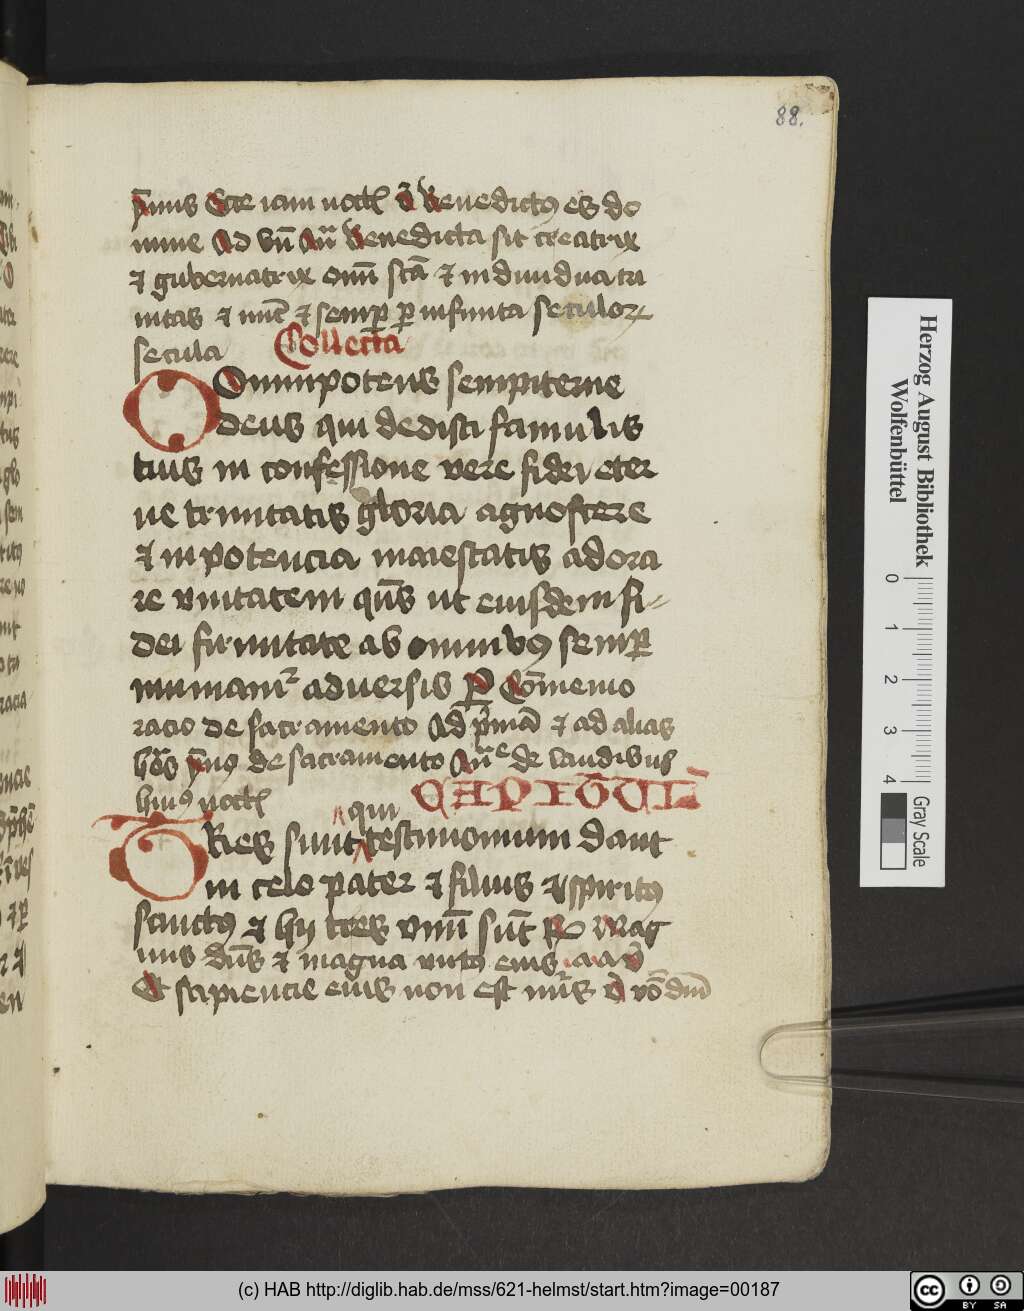 88.
ȳmus Ecce iam noctꝭ v̄ Benedictꝰ es do
mine Ad vn̄ An̄ Benedicta sit creatrix
⁊ gubernatrix om̄i sctā ⁊ indiuidua tri
nitas ⁊ nūc ⁊ semꝑ ꝑ infinita seculoꝝ
secula Collecta
Omnipotens sempiterne
deus qui dedisti famulis
tuis in confessione vere fidei eter
ne trinitatis gloria agnoscere
⁊ in potencia maiestatis adora
re vnitatem qn̄s ut eiusdem fi
dei firmitate ab omnibꝰ semꝑ
muniamur aduersis Per Cōmemo
racio de sacramento Ad pⁱmā ⁊ ad alias
horas ȳmꝰ de sacramento Ane de laudibus
huiꝰ noctꝭ
CAPITULŪ
TRes sunt qui testimonium dant
in celo pater ⁊ filius ⁊ spiritꝰ
sanctꝰ ⁊ hij tres vnū sūt ℟ Mag
nus dn̄s ⁊ magna virtꝰ eius
Et sapiencie eius non est nūs
Herzog August Bibliothek
Wolfenbüttel
0 1 2 3 4
Gray Scale
(c) HAB http://diglib.hab.de/mss/621-helmst/start.htm?image=00187
cc BY SA